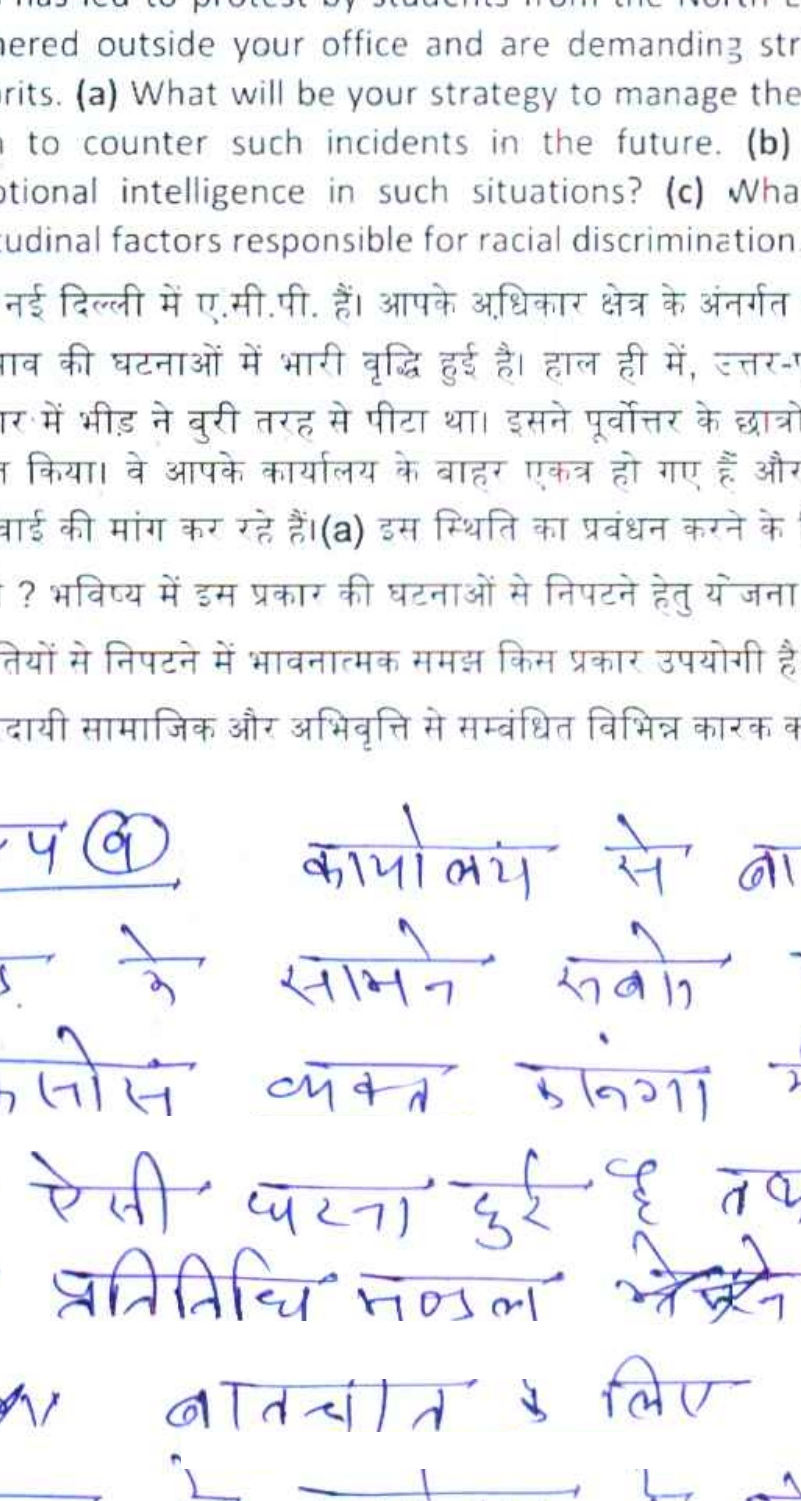 has led to protest by students from the North E
hered outside your office and are demanding str
rits. (a) What will be your strategy to manage the
to counter such incidents in the future. (b)
otional intelligence in such situations? (c) Wha
tudinal factors responsible for racial discrimination.
नई दिल्ली में ए.सी.पी. हैं। आपके अधिकार क्षेत्र के अंतर्गत
ाव की घटनाओं में भारी वृद्धि हुई है। हाल ही में, उत्तर-प
ार में भीड़ ने बुरी तरह से पीटा था। इसने पूर्वोत्तर के छात्रों
किया। वे आपके कार्यालय के बाहर एकत्र हो गए हैं और
वाई की मांग कर रहे हैं।(a) इस स्थिति का प्रबंधन करने के
? भविष्य में इस प्रकार की घटनाओं से निपटने हेतु योजना
तियों से निपटने में भावनात्मक समझ किस प्रकार उपयोगी है
दायी सामाजिक और अभिवृत्ति से सम्बंधित विभिन्न कारक क
कार्यालय से बा
के सामने
व्यक्त करूंगा
ऐसी घटना हुई है तथ
प्रतिनिधि मण्डल
बातचीत के लिए